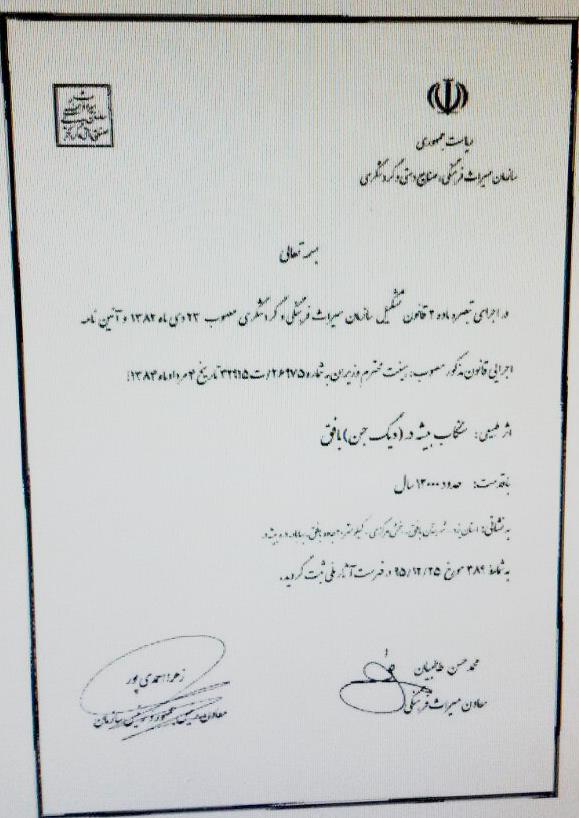 ریاست جمهوری
سازمان میراث فرهنگی، صنایع دستی و گردشگری
بسمه تعالی
در اجرای تبصره ماده ۲ قانون تشکیل سازمان میراث فرهنگی و گردشگری مصوب ۲۳ دی ماه ۱۳۸۲ و آئین نامه
اجرایی قانون مذکور مصوب هیئت محترم وزیران به شماره ۲۶۹۷۵/ت۳۲۹۱۵ تاریخ ۴ مرداد ماه ۱۳۸۴
اثر طبیعی: سنگاب بیشه در (دیگ جن) بافق
با قدمت: حدود ۱۲۰۰۰ سال
به نشانی: استان یزد - شهرستان بافق - بخش مرکزی - کیلومتر جاده بافق
به شماره ۳۸۹ مورخ ۹۵/۱۲/۲۵ در فهرست آثار ملی ثبت گردید.
محمد حسن طالبیان
معاون میراث فرهنگی
زهرا احمدی پور
معاون رئیس جمهور و رئیس سازمان